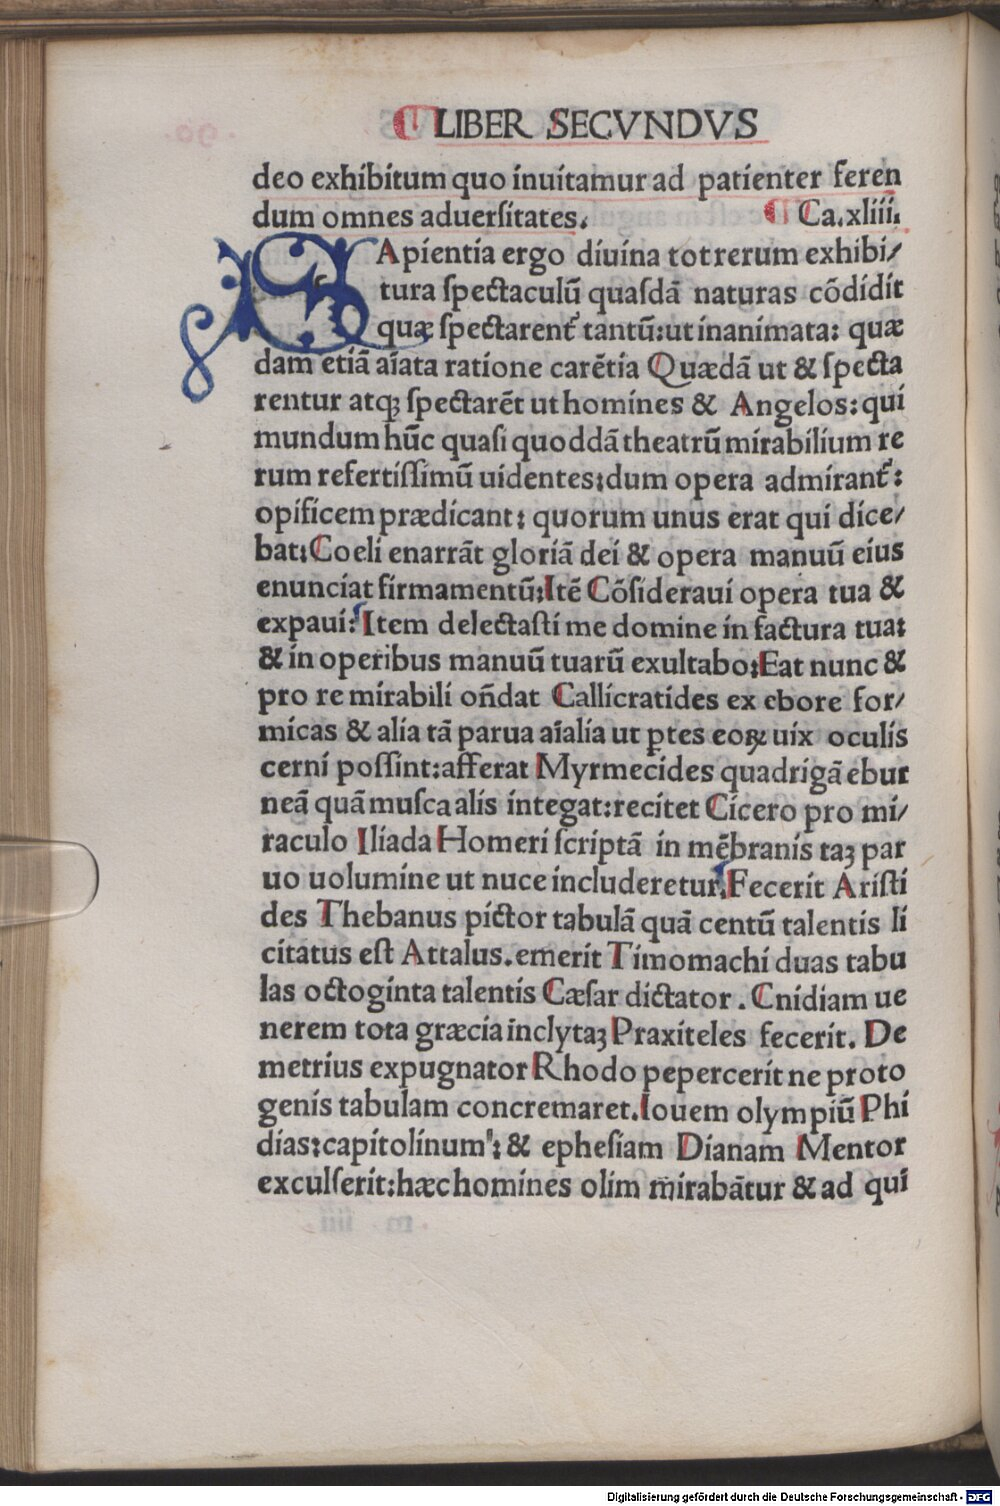 ¶ LIBER SECVNDVS
deo exhibitum quo inuitamur ad patienter feren
dum omnes aduerſitates. ¶ Ca.xliii.
SApientia ergo diuina tot rerum exhibi/
tura ſpectaculū quaſdā naturas cōdidit
quæ ſpectarent᷑ tantū: ut inanimata: quæ
dam etiā aīata ratione carētia Quædā ut & ſpecta
rentur atq꜕ ſpectarēt ut homines & Angelos: qui
mundum hūc quaſi quoddā theatrū mirabilium re
rum refertiſſimū uidentes: dum opera admirant᷑:
opificem prædicant: quorum unus erat qui dice/
bat: Coeli enarrāt gloriā dei & opera manuū eius
enunciat firmamentū: Itē Cōſideraui opera tua &
expaui: Item delectaſti me domine in factura tua:
& in operibus manuū tuarū exultabo: Eat nunc &
pro re mirabili on̄dat Callicratides ex ebore for/
micas & alia tā parua aīalia ut ꝑtes eoꝝ uix oculis
cerni poſſint: afferat Myrmecides quadrigā ebur
neā quā muſca alis integat: recitet Cicero pro mi/
raculo Iliada Homeri ſcriptā in mēbranis taꝫ par
uo uolumine ut nuce includeretur. Fecerit Ariſti
des Thebanus pictor tabulā quā centū talentis li
citatus eſt Attalus. emerit Timomachi duas tabu
las octoginta talentis Cæſar dictator. Cnidiam ue
nerem tota græcia inclytaꝫ Praxiteles fecerit. De
metrius expugnator Rhodo pepercerit ne proto
genis tabulam concremaret. Iouem olympiū Phi
dias: capitolinum: & epheſiam Dianam Mentor
exculſerit: hæc homines olim mirabātur & ad qui
Digitalisierung gefördert durch die Deutsche Forschungsgemeinschaft - DFG